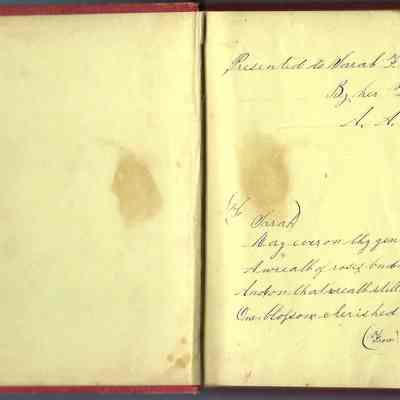 Presented to Sarah F
By her
A. A.
(To
Sarah)
May ever on thy gen
A wreath of roses bud
And on that wreath still
One blossom cherished
(From